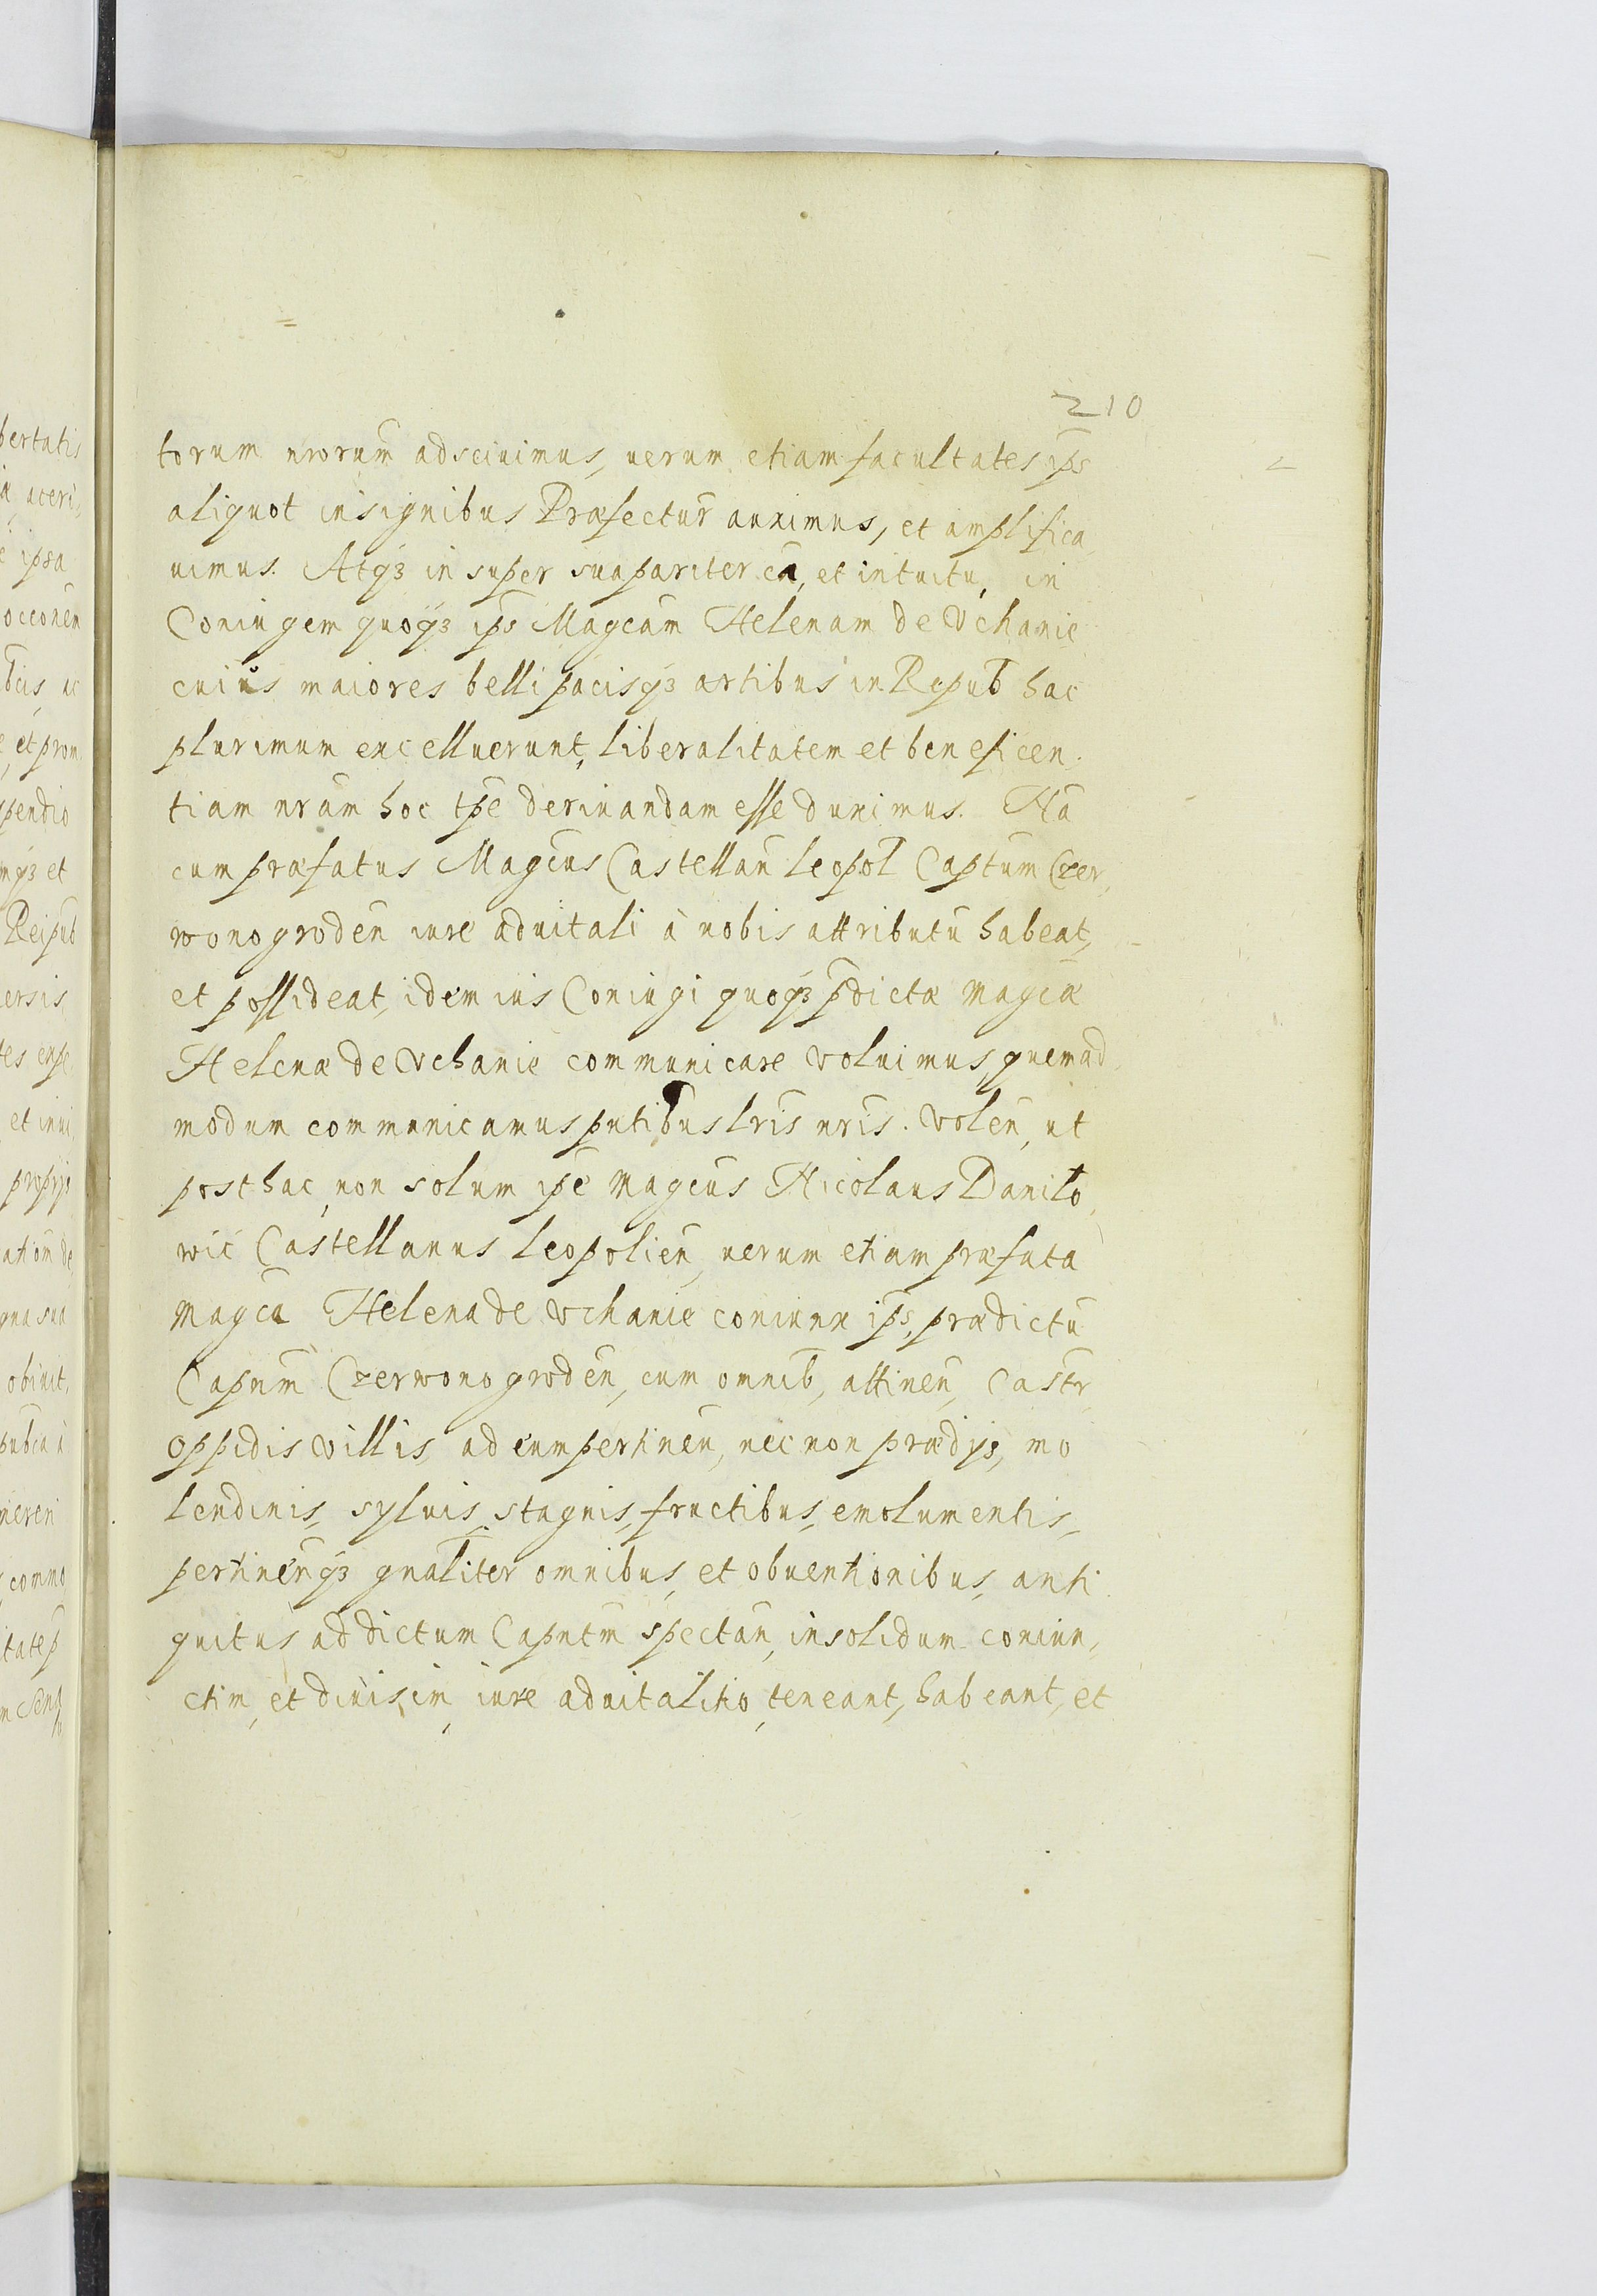 210
torum nrorum̄ adsciuimus, uerum etiam facultates ip̄s
aliquot insignibus Præfectur̄ auximus, et amplifica
uimus. Atqꝫ in super sua pariter cā, et intuitu, in
Coniugem quoqꝫ ip̄s Magcām Helenam de Vchanie
cuius maiores belli pacisqꝫ artibus in Repub̄ hac
plurimum excelluerunt, liberalitatem et beneficen.
tiam nrām hoc tpē deriuandam esse duximus. Nā
cum præfatus Magcūs Castellan̄ Leopol̄ Captum̄ Czer,
wonogroden̄ iure aduitali à nobis attributū habeat,
et possideat, idem ius Coniugi quoqꝫ p̄dictæ Magcǣ
Helenæ de Vchanie communicare voluimus, quemad,
modum communicamus pntibus̄ lris̄ nris̄. Volen̄, ut
posthac, non solum ipē Magcūs Nicolaus Daniło,
wic Castellanus Leopolien̄, uerum etiam præfata
Magcā Helena de Vchanie coniunx ip̄s, prædictū
Capnm̄ Czerwonogroden̄, cum omnib̄, attinen̄, Castr̄
oppidis villis, ad eum pertinen̄, nec non prædijs, mo
lendinis, syluis, stagnis, fructibus, emolumentis,
pertinen̄qꝫ gnal̄iter omnibus, et obuentionibus, anti
quitus ad dictum Capntm̄ spectan̄, insolidum coniun,
ctim, et diuisim, iure aduitalitio, teneant, habeant, et